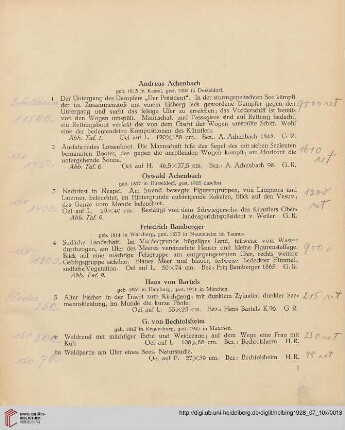 Andreas Achenbach
geb. 1815 in Kassel, gest. 1910 in Düsseldorf.
1 Der Untergang des Dampfers „Der Präsident“. In der sturmgepeitschten See kämpft
der im Zusammenstoß mit einem Eisberg leck gewordene Dampfer gegen den
Untergang und sucht das eisige Ufer zu erreichen; das Vorderschiff ist bereits
von den Wogen umspült. Mannschaft und Passagiere sind auf Rettung bedacht,
ein Rettungsboot verläßt das von dem Gischt der Wogen umtoste Schiff. Wohl
eine der bedeutendsten Kompositionen des Künstlers.
Abb. Taf. 1. Oel auf L. Bez.: A. Achenbach G. R.
2 Ausfahrendes Lotsenboot. Die Mannschaft hißt das Segel des mit sieben Seeleuten
bemannten Bootes, das gegen die anrollenden Wogen kämpft; am Horizont die
untergehende Sonne.
Abb. Taf. 6. Oel auf H. 46,5×37,5 cm. Bez.: A. Achenbach 98. G. R.
Oswald Achenbach
geb. 1827 in Düsseldorf, gest. 1905 daselbst.
3 Nachtfest in Neapel. Auf der Terrasse bewegte Figurengruppen, von Lampions und
Laternen beleuchtet, im Hintergrunde aufsteigende Raketen, Blick auf den Vesuv,
das Ganze vom Monde beleuchtet.
Oel auf L. cm. Bestätigt von dem Schwiegersohn des Künstlers Ober-
Abb. Taf. 9. landesgerichtspräsident v. Weiler G. R.
Friedrich Bamberger
geb. 1814 in Würzburg, gest. 1873 in Neuenhain im Taunus.
4 Südliche Landschaft. Im Vordergrunde hügeliges Land, teilweise vom Wasser
durchzogen, am Ufer des Meeres verschiedene Häuser und kleine Figurenstaffage.
Blick auf eine mächtige Felsgruppe am entgegengesetzten Ufer, rechts weitere
Gebirgsgruppe sichtbar. Blaues Meer und blauer, teilweise bedeckter Himmel,
südliche Vegetation. Oel auf L. 50×74 cm. Bez.: Fritz Bamberger 1865. G. R.
Hans von Bartels
geb. 1856 in Hamburg, gest. 1913 in München.
5 Alter Fischer in der Tracht zum Kirchgang; mit dunklem Zylinder, dunkler See-
mannskleidung, im Munde die kurze Pfeife.
Oel auf L. 35×25 cm. Bez.: Hans Bartels K 96 G. R.
G. von Bechtolsheim
geb. 1842 in Regensburg, gest. in München.
6 Waldrand mit mächtiger Birke und Weidezaun; auf dem Wege eine Frau mit
Kuh. Oel auf L. cm. Bez.: Bechtolsheim H. R.
6a Waldpartie am Ufer eines Sees. Naturstudie.
Oel auf P. 27×39 cm. Bez.: Bechtolsheim H. R.
1
UNIVERSITÄTS-
BIBLIOTHEK
HEIDELBERG
http://digi.ub.uni-heidelberg.de/diglit/helbing1928_07_10x/0013